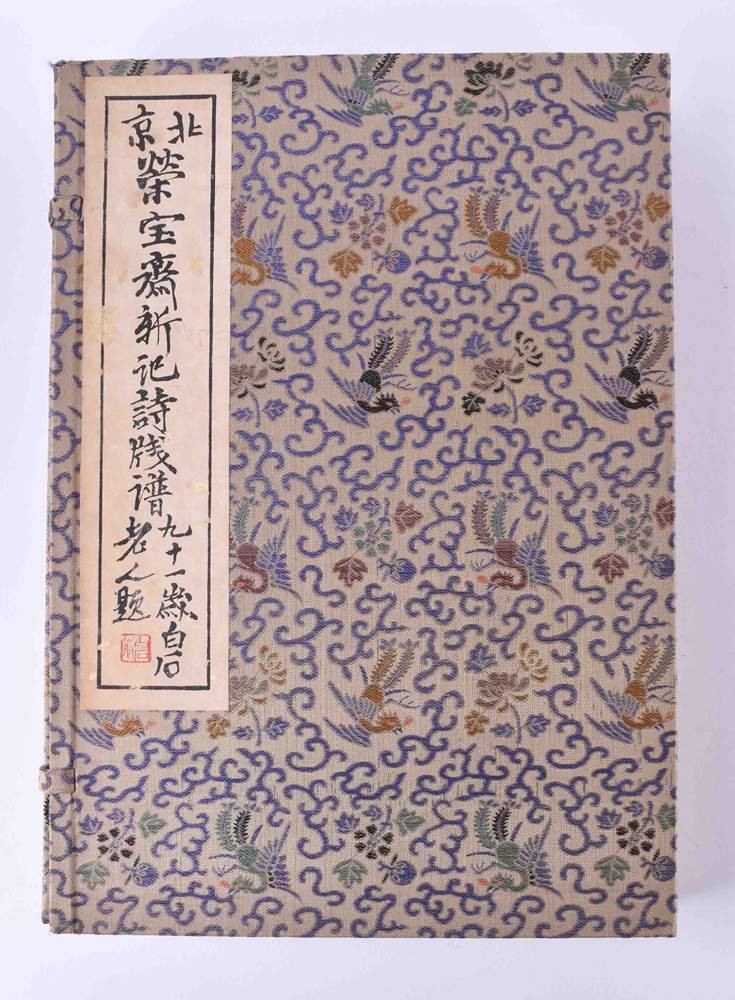 北京
榮宝齋新记詩牋谱
九十一歲白石
老人题